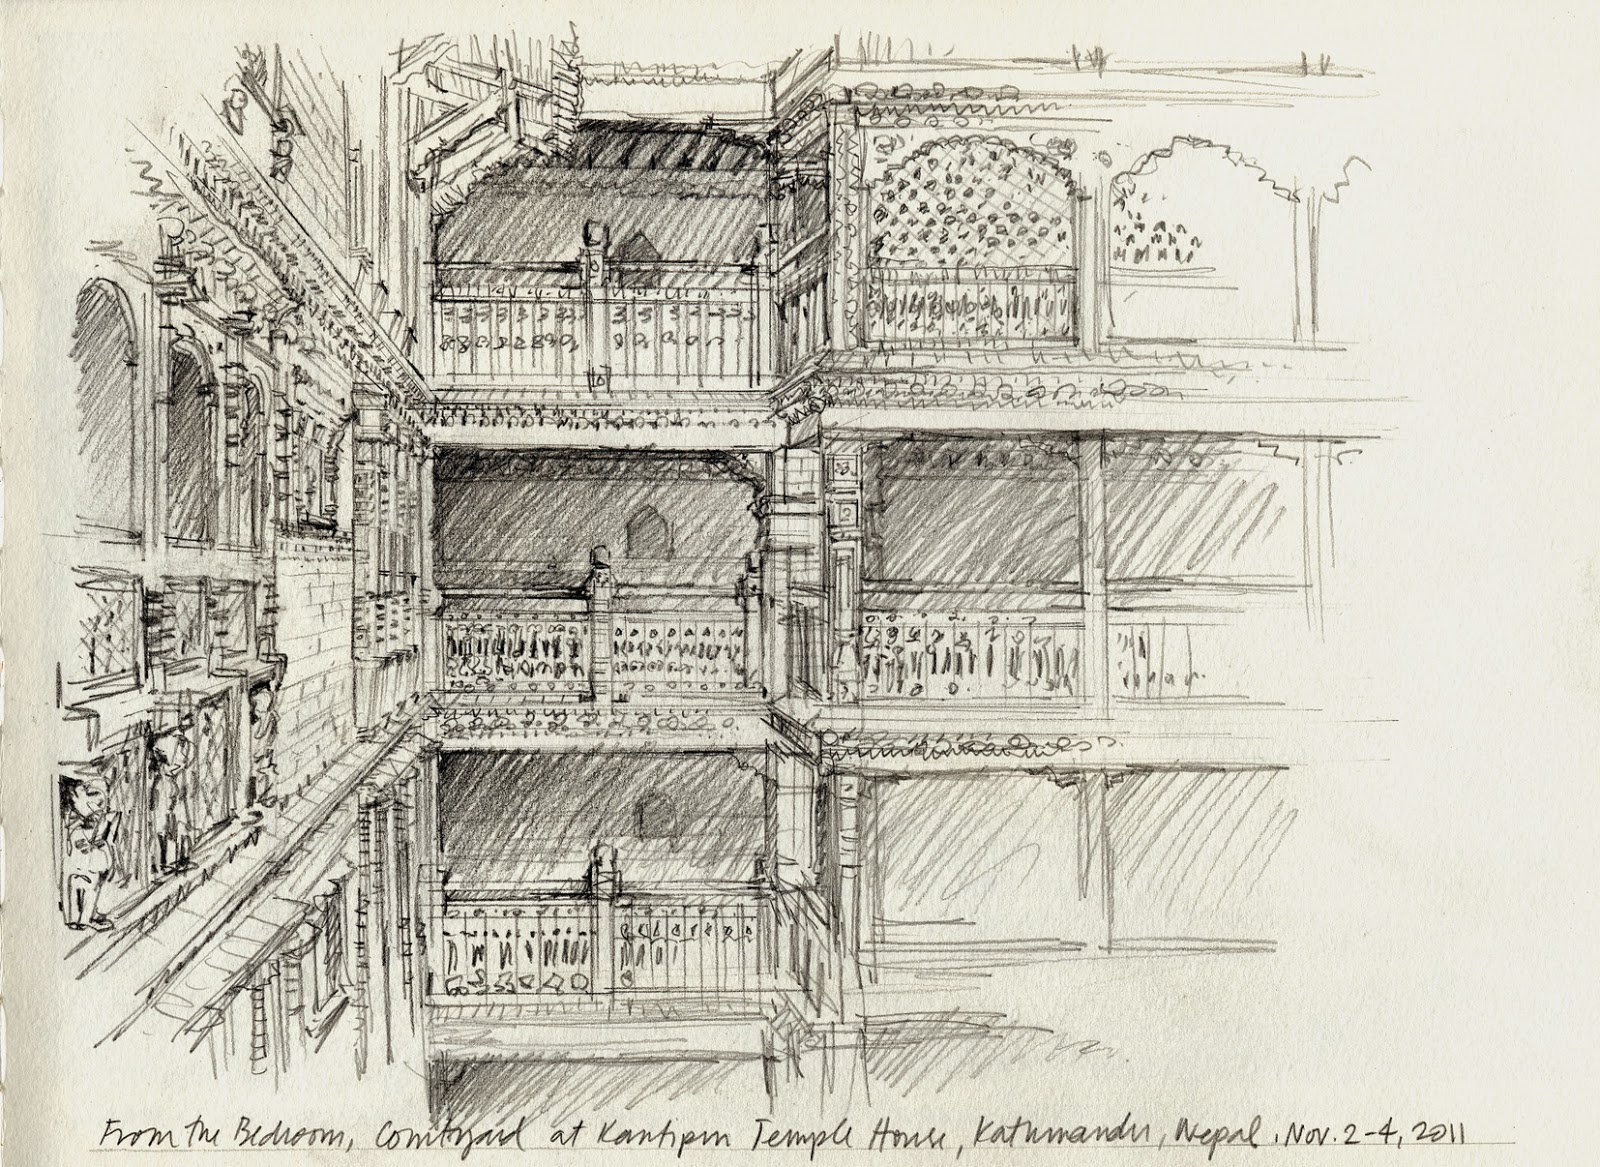 From the Bedroom, Courtyard at Kantipur Temple House, Kathmandu, Nepal. Nov. 2-4, 2011